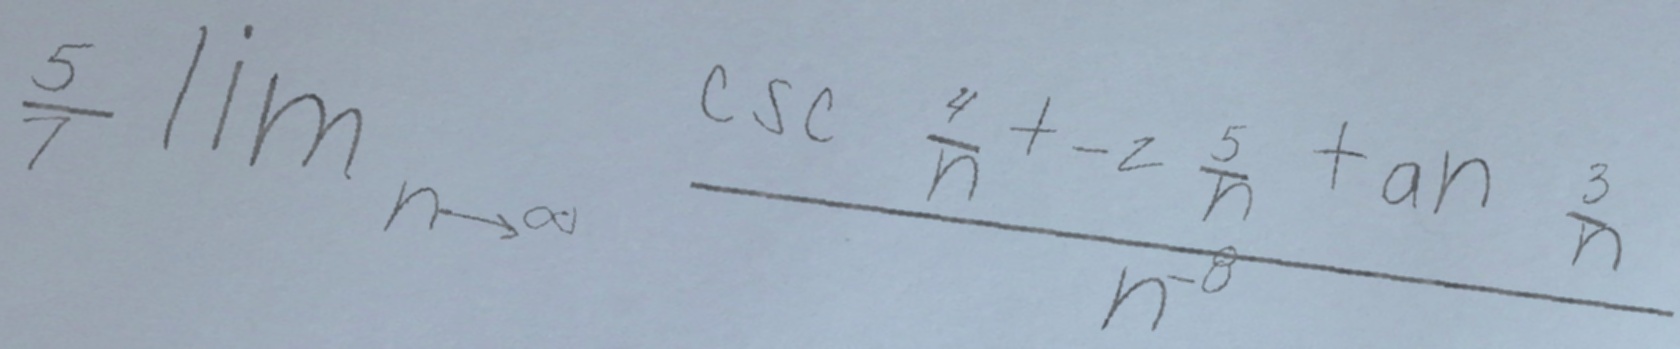 \frac{5}{7} \lim_{n \to \infty} \frac{\csc \frac{4}{n} + -2 \frac{5}{n} \tan \frac{3}{n}}{n^{-8}}